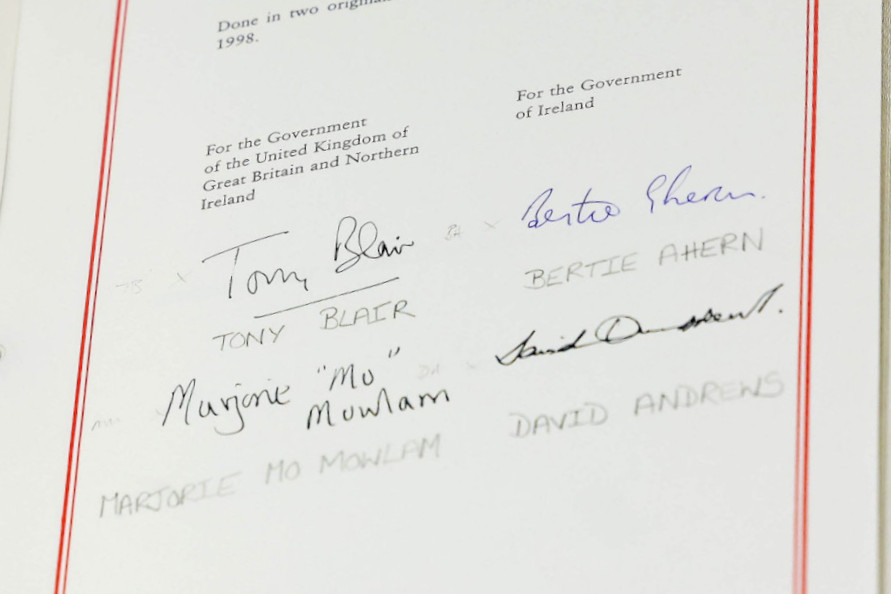 Done in two original
1998.
For the Government
of the United Kingdom of
Great Britain and Northern
Ireland
For the Government
of Ireland
TB x Tony Blair
TONY BLAIR
BA x Bertie Ahern.
BERTIE AHERN
MM x Marjorie "Mo"
Mowlam
MARJORIE MO MOWLAM
DA x David Andrews.
DAVID ANDREWS